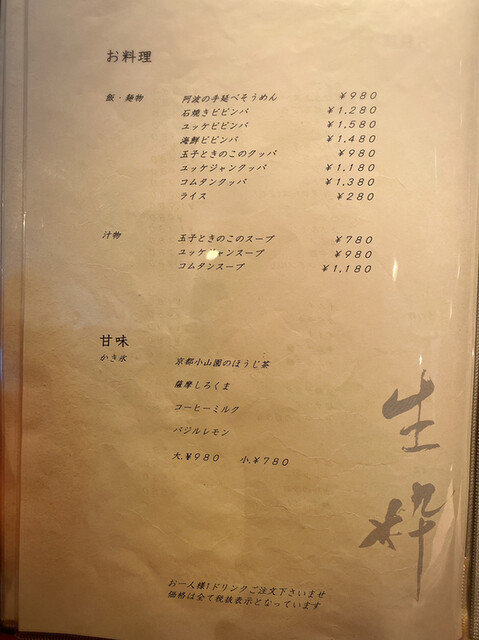 お料理
飯・麺物 阿波の手延べそうめん ¥980
石焼きビビンバ ¥1,280
ユッケビビンバ ¥1,580
海鮮ビビンバ ¥1,480
玉子ときのこのクッパ ¥980
ユッケジャンクッパ ¥1,180
コムタンクッパ ¥1,380
ライス ¥280
汁物 玉子ときのこのスープ ¥780
ユッケジャンスープ ¥980
コムタンスープ ¥1,180
甘味
かき氷 京都小山園のほうじ茶
薩摩しろくま
コーヒーミルク
バジルレモン
大.¥980 小.¥780
生粋
お一人様1ドリンクご注文下さいませ
価格は全て税抜表示となっています